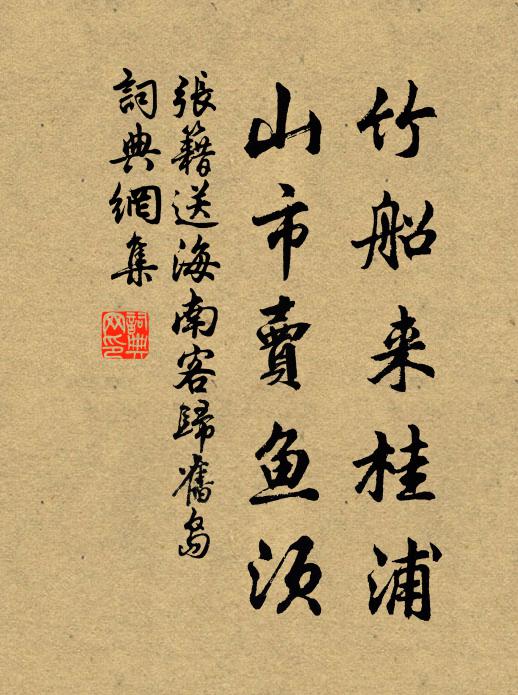 竹船来桂浦
山市賣魚須
張籍送海南客歸舊島
詞典網集
詞典網印